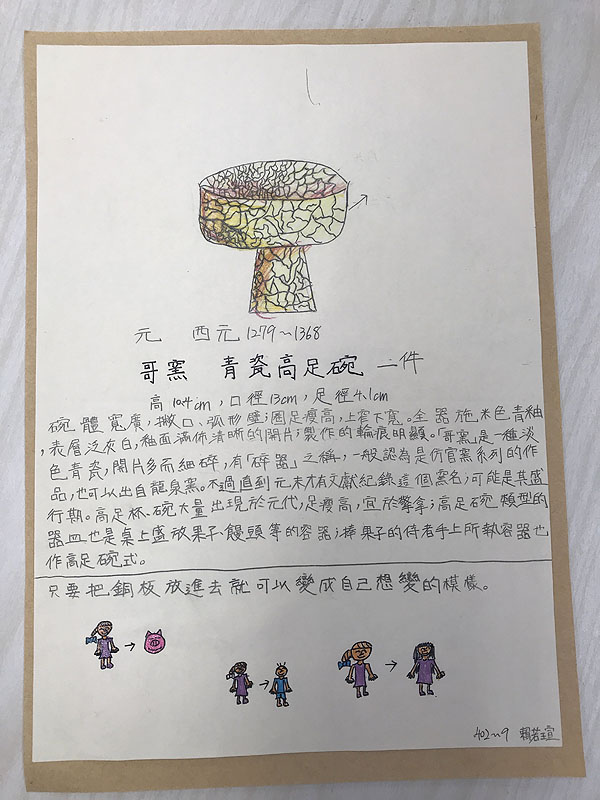 元 西元1279~1368
哥窯 青瓷高足碗 一件
高10.4cm，口徑13cm，足徑4.1cm
碗體寬廣，撇口、弧形壁；圈足瘦高，上窄下寬。全器施米色青釉
，表層泛灰白，釉面滿佈清晰的開片；製作的輪痕明顯。「哥窯」是一種淡
色青瓷，開片多而細碎，有「碎器」之稱，一般認為是仿官窯系列的作
品，也可以出自龍泉窯。不過直到元末才有文獻紀錄這個窯名；可能是其盛
行期。高足杯、碗大量出現於元代，足瘦高，宜於擎拿；高足碗類型的
器皿也是桌上盛放果子、饅頭等的容器；捧果子的侍者手上所執容器也
作高足碗式。
只要把銅板放進去就可以變成自己想變的模樣。
402~9 賴若瑄